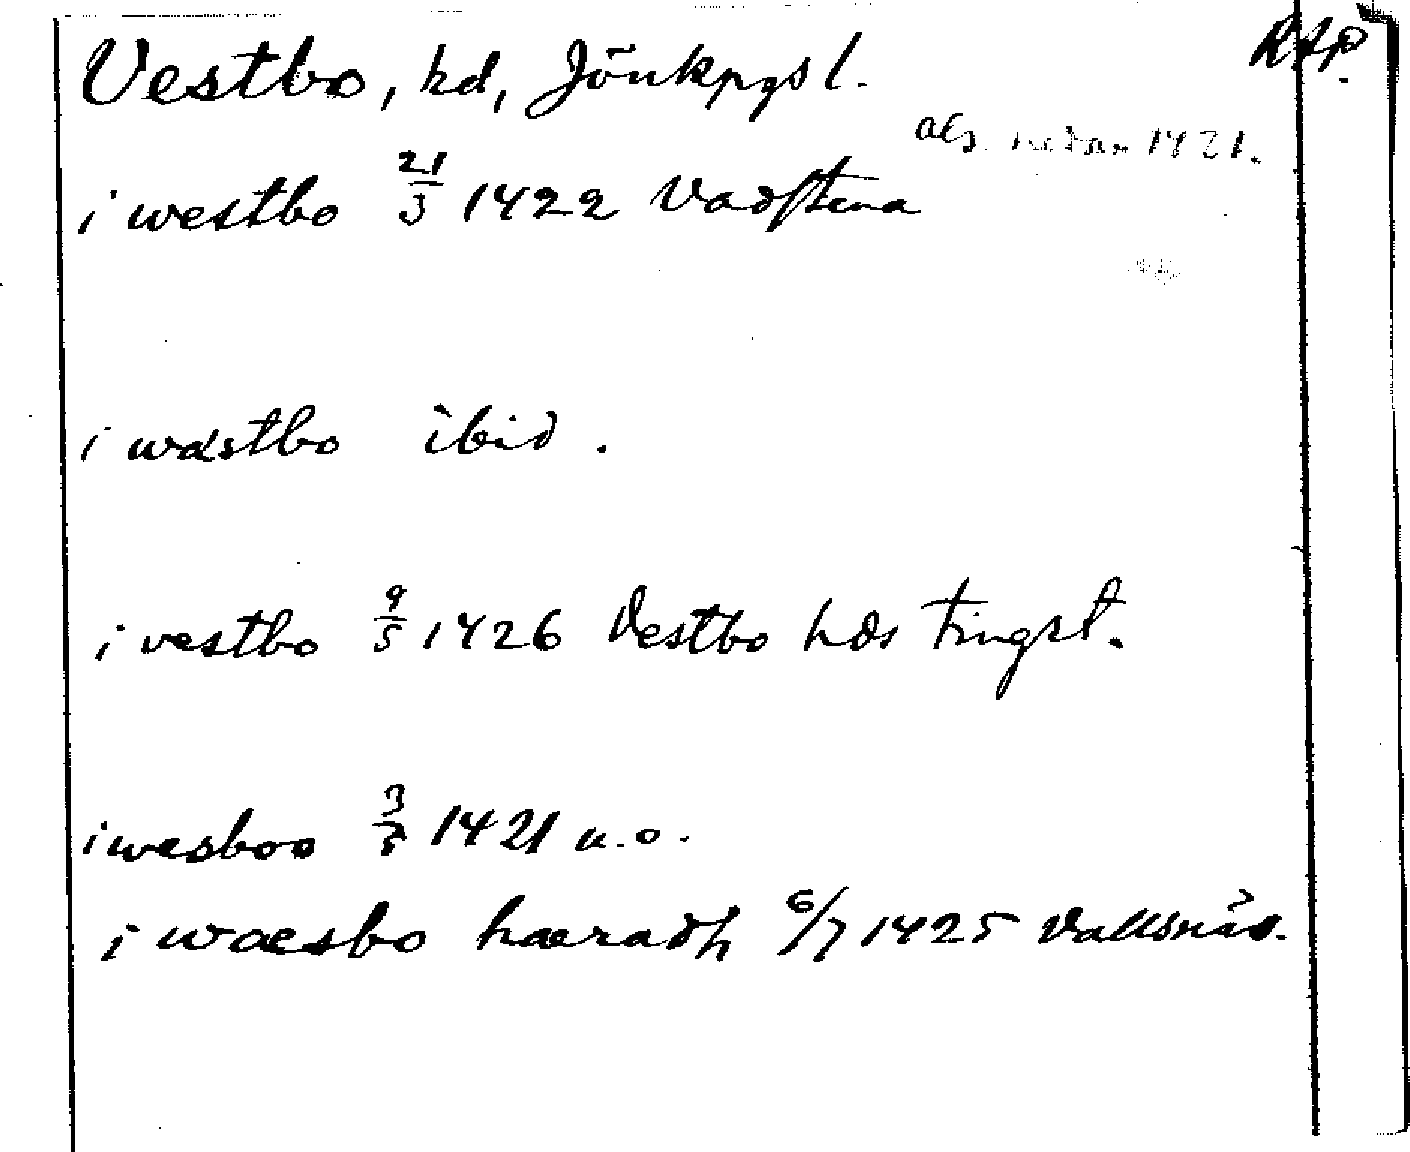 Vestbo, hd, Jönkpgs l. RAP.
als. nedan 1421.
i westbo 21/3 1422 Vadstena
i wæstbo ibid.
i vestbo 9/5 1426 Vestbo hds tingst.
i wesboo 1421 u.o.
i waesbo haeradh 6/7 1425 Vallsnäs.